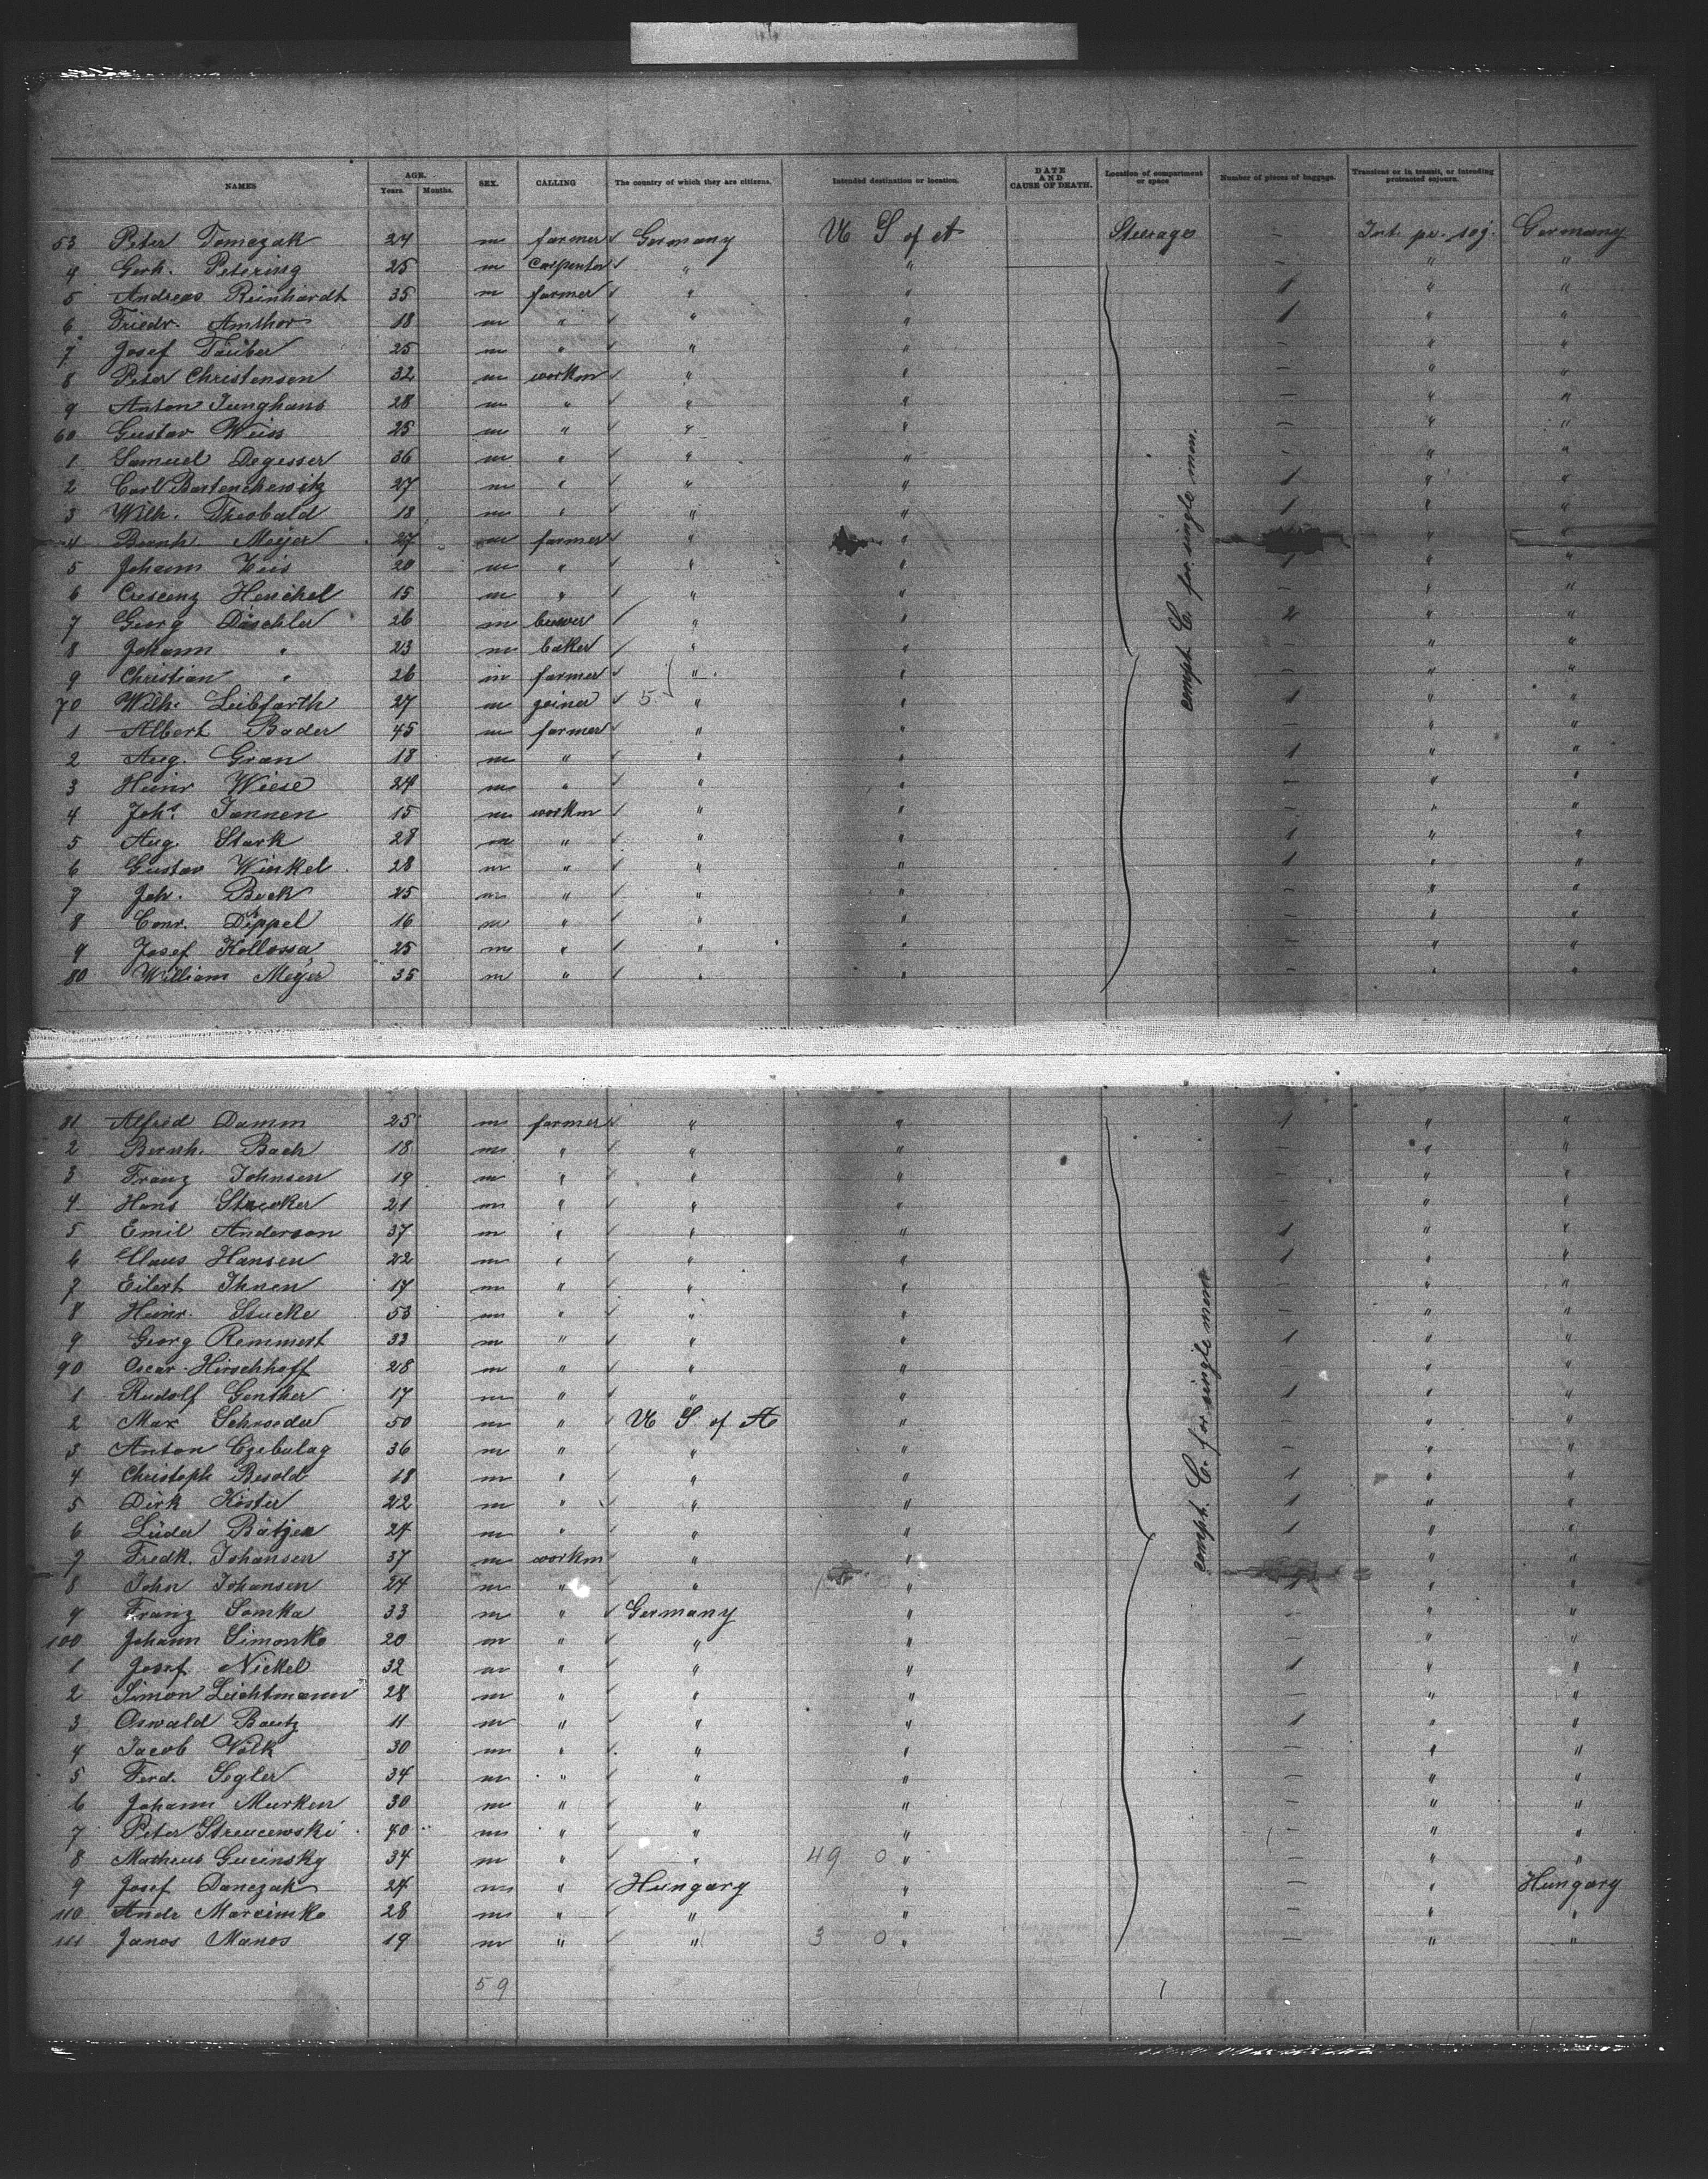 NAMES AGE. Years. Months. SEX. CALLING The country of which they are citizens. Intended destination or location. DATE AND CAUSE OF DEATH. Location of compartment or space Number of pieces of baggage. Transient or in transit, or intending protracted sojourn.
53 Peter Tomczak 24 m farmer ✓ Germany U S of A Steerage – Int. pr. soj. Germany
4 Gerh. Petering 25 m Carpenter ✓ " " – " "
5 Andreas Reinhardt 35 m farmer ✓ " " 1 " "
6 Friedr. Amthor 18 m " ✓ " " 1 " "
7 Josef Täuber 25 m " ✓ " " – " "
8 Peter Christensen 32 m workm ✓ " " – " "
9 Anton Junghans 28 m " ✓ " " – " "
60 Gustav Weiss 25 m " ✓ " " – " "
1 Samuel Degesser 36 m " ✓ " " – " "
2 Carl Bartenchewitz 27 m " ✓ " " 1 " "
3 Wilh. Theobald 18 m " ✓ " " 1 " "
4 Bernh. Meyer 27 m farmer ✓ " " " "
5 Johann Weis 20 m " ✓ " " 1 " "
6 Crescenz Henichel 15 m " ✓ " " – " "
7 Georg Däschler 26 m brewer ✓ " " 2 " "
8 Johann " 23 m baker ✓ " " – " "
9 Christian " 26 m farmer ✓ " " – " "
70 Wilh. Leibfarth 27 m joiner ✓ 5 " " 1 " "
1 Albert Bader 45 m farmer ✓ " " – " "
2 Aug. Gran 18 m " ✓ " " 1 " "
3 Heinr Wiese 24 m " ✓ " " – " "
4 Johs. Jannen 15 m workm ✓ " " – " "
5 Aug. Stark 28 m " ✓ " " 1 " "
6 Gustav Winkel 28 m " ✓ " " 1 " "
7 Joh. Beck 25 m " ✓ " " – " "
8 Conr. Dippel 16 m " ✓ " " – " "
9 Josef Kollossa 25 m " ✓ " " – " "
80 William Meyer 35 m " ✓ " " – " "
compt. C. for single men.
81 Alfred Damm 25 m farmer ✓ " " 1 " "
2 Bernh. Bach 18 m " ✓ " " – " "
3 Franz Johnsen 19 m " ✓ " " – " "
4 Hans Strecker 21 m " ✓ " " – " "
5 Emil Anderson 37 m " ✓ " " 1 " "
6 Claus Hansen 22 m " ✓ " " 1 " "
7 Eilert Ihnen 17 m " ✓ " " – " "
8 Heinr. Stucke 53 m " ✓ " " – " "
9 Georg Remmert 33 m " ✓ " " 1 " "
90 Oscar Hirschhoff 28 m " ✓ " " – " "
1 Rudolf Genther 17 m " ✓ " " 1 " "
2 Max Schroeder 50 m " ✓ U S of A " – " "
3 Anton Czebulag 36 m " ✓ " " – " "
4 Christoph Besold 18 m " ✓ " " 1 " "
5 Dirk Köster 22 m " ✓ " " 1 " "
6 Lüder Bätjer 24 m " ✓ " " 1 " "
7 Fredk. Johansen 37 m workm ✓ " " " "
8 John Johansen 24 m " ✓ " " 1 " "
9 Franz Somka 33 m " ✓ Germany " – " "
100 Johann Simonko 20 m " ✓ " " – " "
1 Josef Nickel 32 m " ✓ " " 1 " "
2 Simon Leichtmann 28 m " ✓ " " – " "
3 Oswald Bautz 11 m " ✓ " " 1 " "
4 Jacob Volk 30 m " ✓ " " – " "
5 Ferd. Segler 34 m " ✓ " " – " "
6 Johann Murken 30 m " ✓ " " – " "
7 Peter Strencewski 40 m " ✓ " " – " "
8 Matheus Gucinsky 34 m " ✓ " 49 0 " – " "
9 Josef Danczak 24 m " ✓ Hungary " – " Hungary
110 Andr Marcinko 28 m " ✓ " " – " "
111 Janos Manos 19 m " ✓ " 3 0 " – " "
compt. C. for single men
59